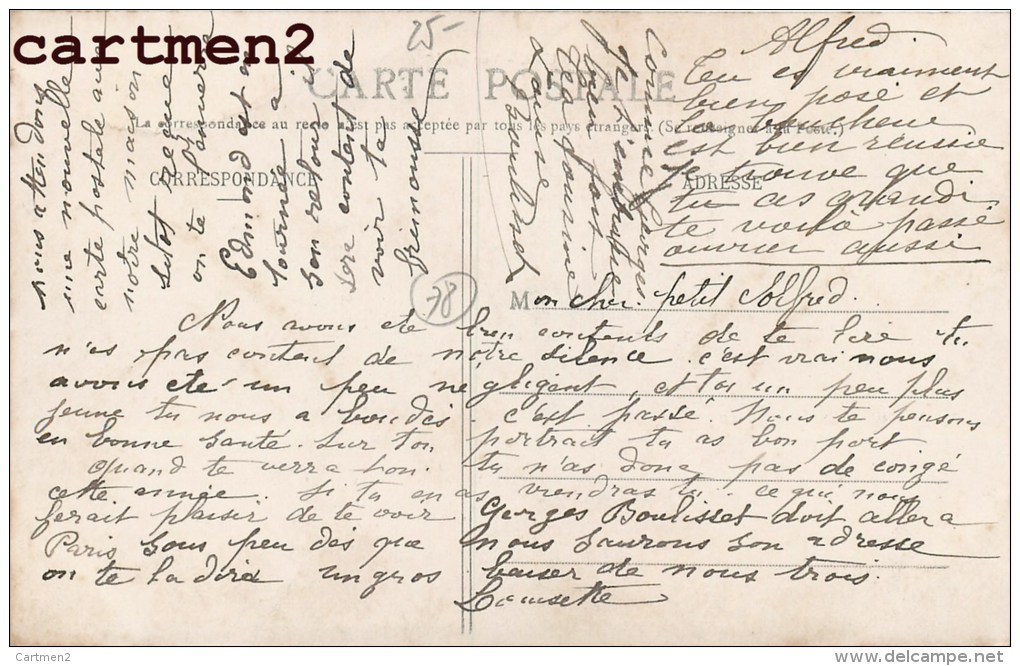 cartmen2
25-
CARTE POSTALE
La correspondance au recto n'est pas acceptée par tous les pays étrangers. (Se renseigner à la Poste.)
CORRESPONDANCE
ADRESSE
78
Mon cher petit Alfred.
Nous avons été bien contents de te lire tu
n'es pas content de notre silence. c'est vrai nous
avons été un peu négligent, et toi un peu plus
jeune tu nous a boudés. c'est passé. Nous te pensons
en bonne santé. sur ton portrait tu as bon port
Quand te verra t'on. tu n'as donc pas de congé
cette année. Si tu en as, viendras tu.. ce qui nous
ferait plaisir de te voir Georges Boulisset doit aller a
Paris sous peu dès que nous saurons son adresse
on te la dira un gros baiser de nous trois.
Louisette
nous attendons
une nouvelle
carte postale avec
notre maison
sitôt reçue
on te
Edmond est en
tournée à
son retour il
sera content de
voir ta
frimousse
Alfred.
Tu es vraiment
bien posé et
la
est bien réussie
je trouve que
tu as grandi.
te voilà passé
ouvrier aussi
comme Georges
Je t'embrasse
bien fort
Ta cousine
Louise